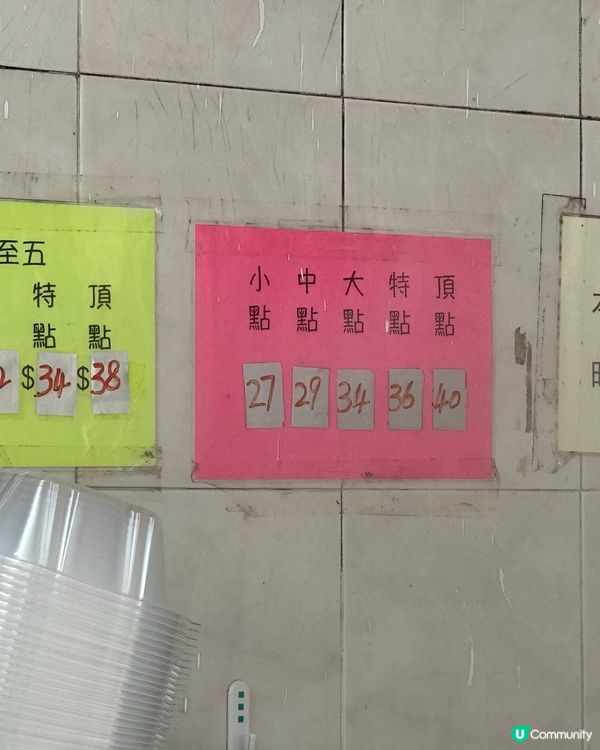 至五
特點 頂點
2 $34 $38
小點 中點 大點 特點 頂點
27 29 34 36 40
U Community